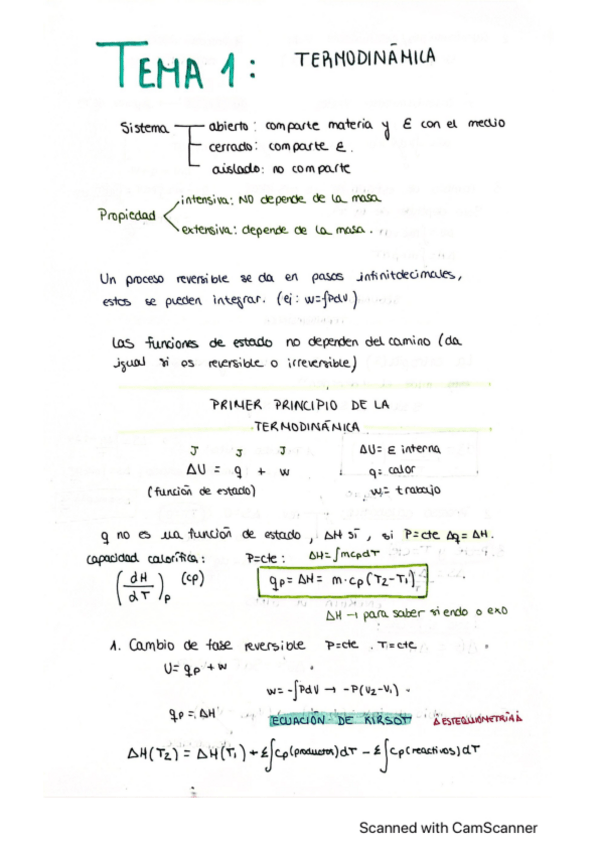 TEMA 1: TERMODINÁMICA
Sistema
abierto: comparte materia y E con el medio
cerrado: comparte E.
aislado: no comparte
Propiedad
intensiva: NO depende de la masa
extensiva: depende de la masa.
Un proceso reversible se da en pasos infinitdecimales,
estos se pueden integrar. (ej: w=∫PdV)
Las funciones de estado no dependen del camino (da
igual si os reversible o irreversible)
PRIMER PRINCIPIO DE LA
TERMODINÁNICA
J J J
ΔU = q + w
(función de estado)
ΔU= E interna
q= calor
w= trabajo
q no es ua función de estado, ΔH sí, si P=cte Δq=ΔH.
capacidad calorífica: P=cte: ΔH=∫mcpdT
(dH/dT)p (cp)
qp = ΔH = m·cp(T2-T1)
ΔH → para saber si endo o exo
1. Cambio de fase reversible P=cte . T=cte
U= qp + w
w= -∫PdV → -P(V2-V1)
qp = ΔH
ECUACIÓN DE KIRSOT ΔESTEQUIOMETRIAΔ
ΔH(T2) = ΔH(T1) + Σ∫cp(productos)dT - Σ∫cp(reactivos)dT
Scanned with CamScanner